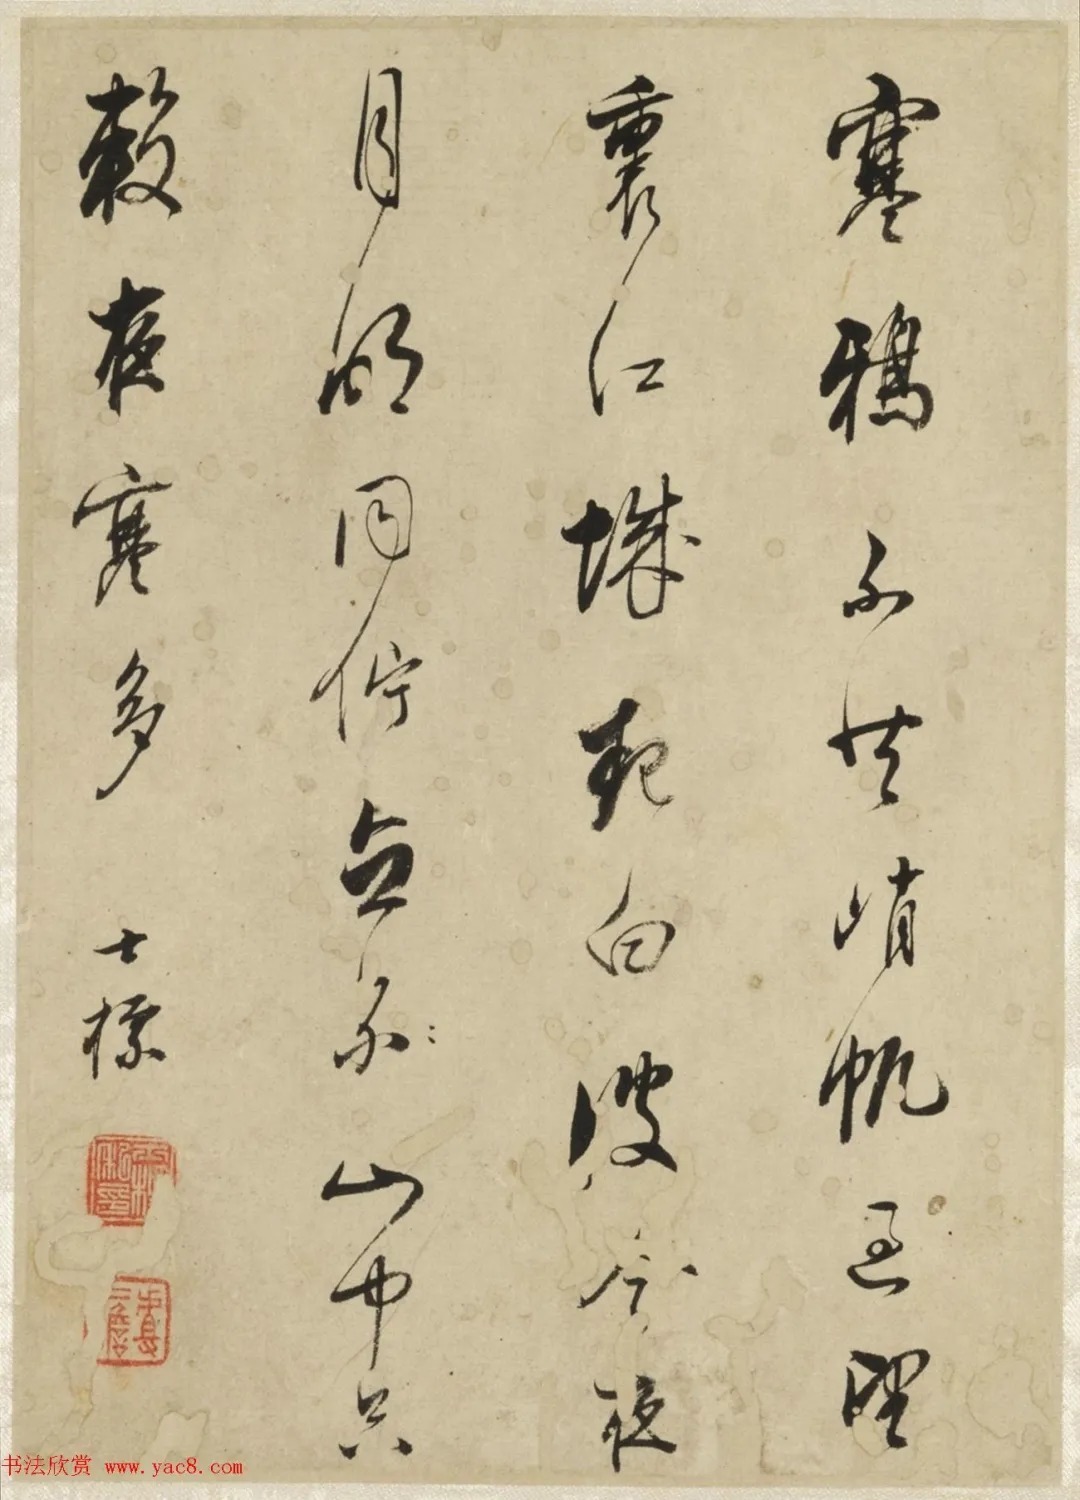 寒鴉不共峭帆過望
裏江城起白波今夜
月明同佇立不山中只
夜寒多
士標
书法欣赏 www.yac8.com